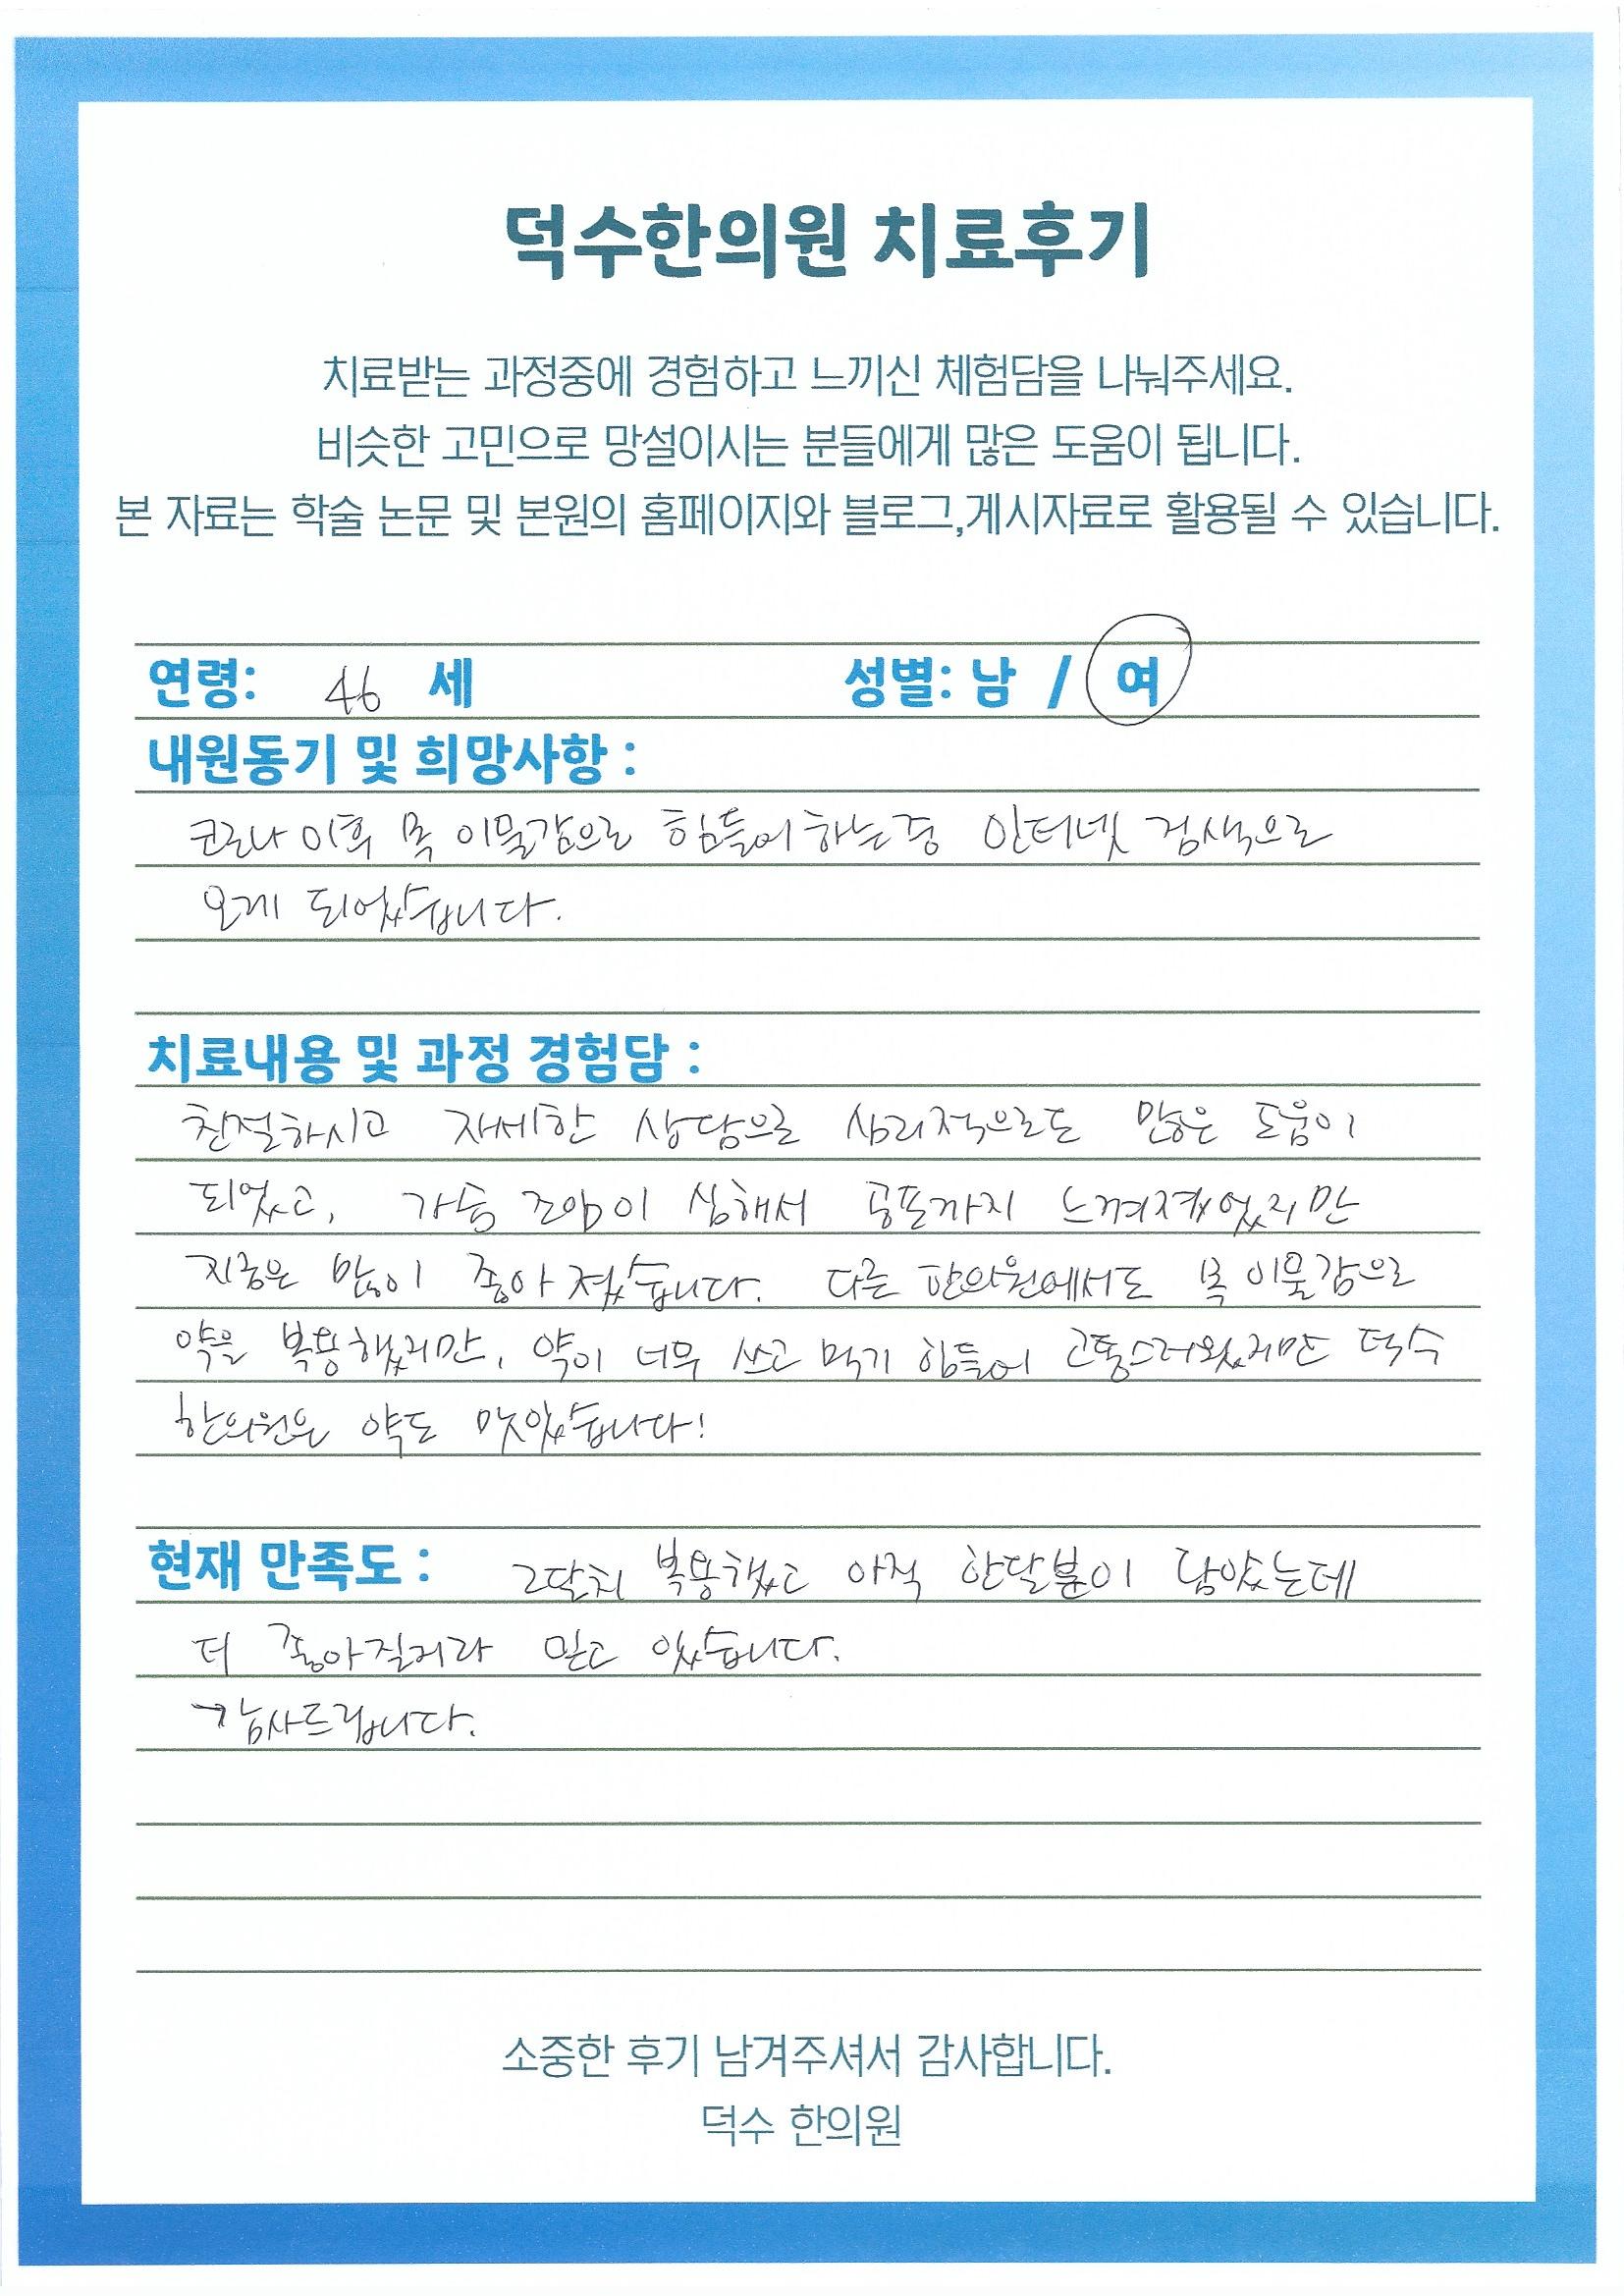 덕수한의원 치료후기
치료받는 과정중에 경험하고 느끼신 체험담을 나눠주세요.
비슷한 고민으로 망설이시는 분들에게 많은 도움이 됩니다.
본 자료는 학술 논문 및 본원의 홈페이지와 블로그,게시자료로 활용될 수 있습니다.
연령: 46 세 성별: 남 / 여
내원동기 및 희망사항 :
코로나 이후 목 이물감으로 힘들어하는중 인터넷 검색으로
오게 되었습니다.
치료내용 및 과정 경험담 :
친절하시고 자세한 상담으로 심리적으로도 많은 도움이
되었고, 가슴 조임이 심해서 공포까지 느껴졌었지만
지금은 많이 좋아졌습니다. 다른 한의원에서도 목 이물감으로
약을 복용했지만, 약이 너무 쓰고 먹기 힘들어 고통스러웠지만 덕수
한의원은 약도 맛있습니다!
현재 만족도 : 2달치 복용했고 아직 한달분이 남았는데
더 좋아질거라 믿고 있습니다.
감사드립니다.
소중한 후기 남겨주셔서 감사합니다.
덕수 한의원